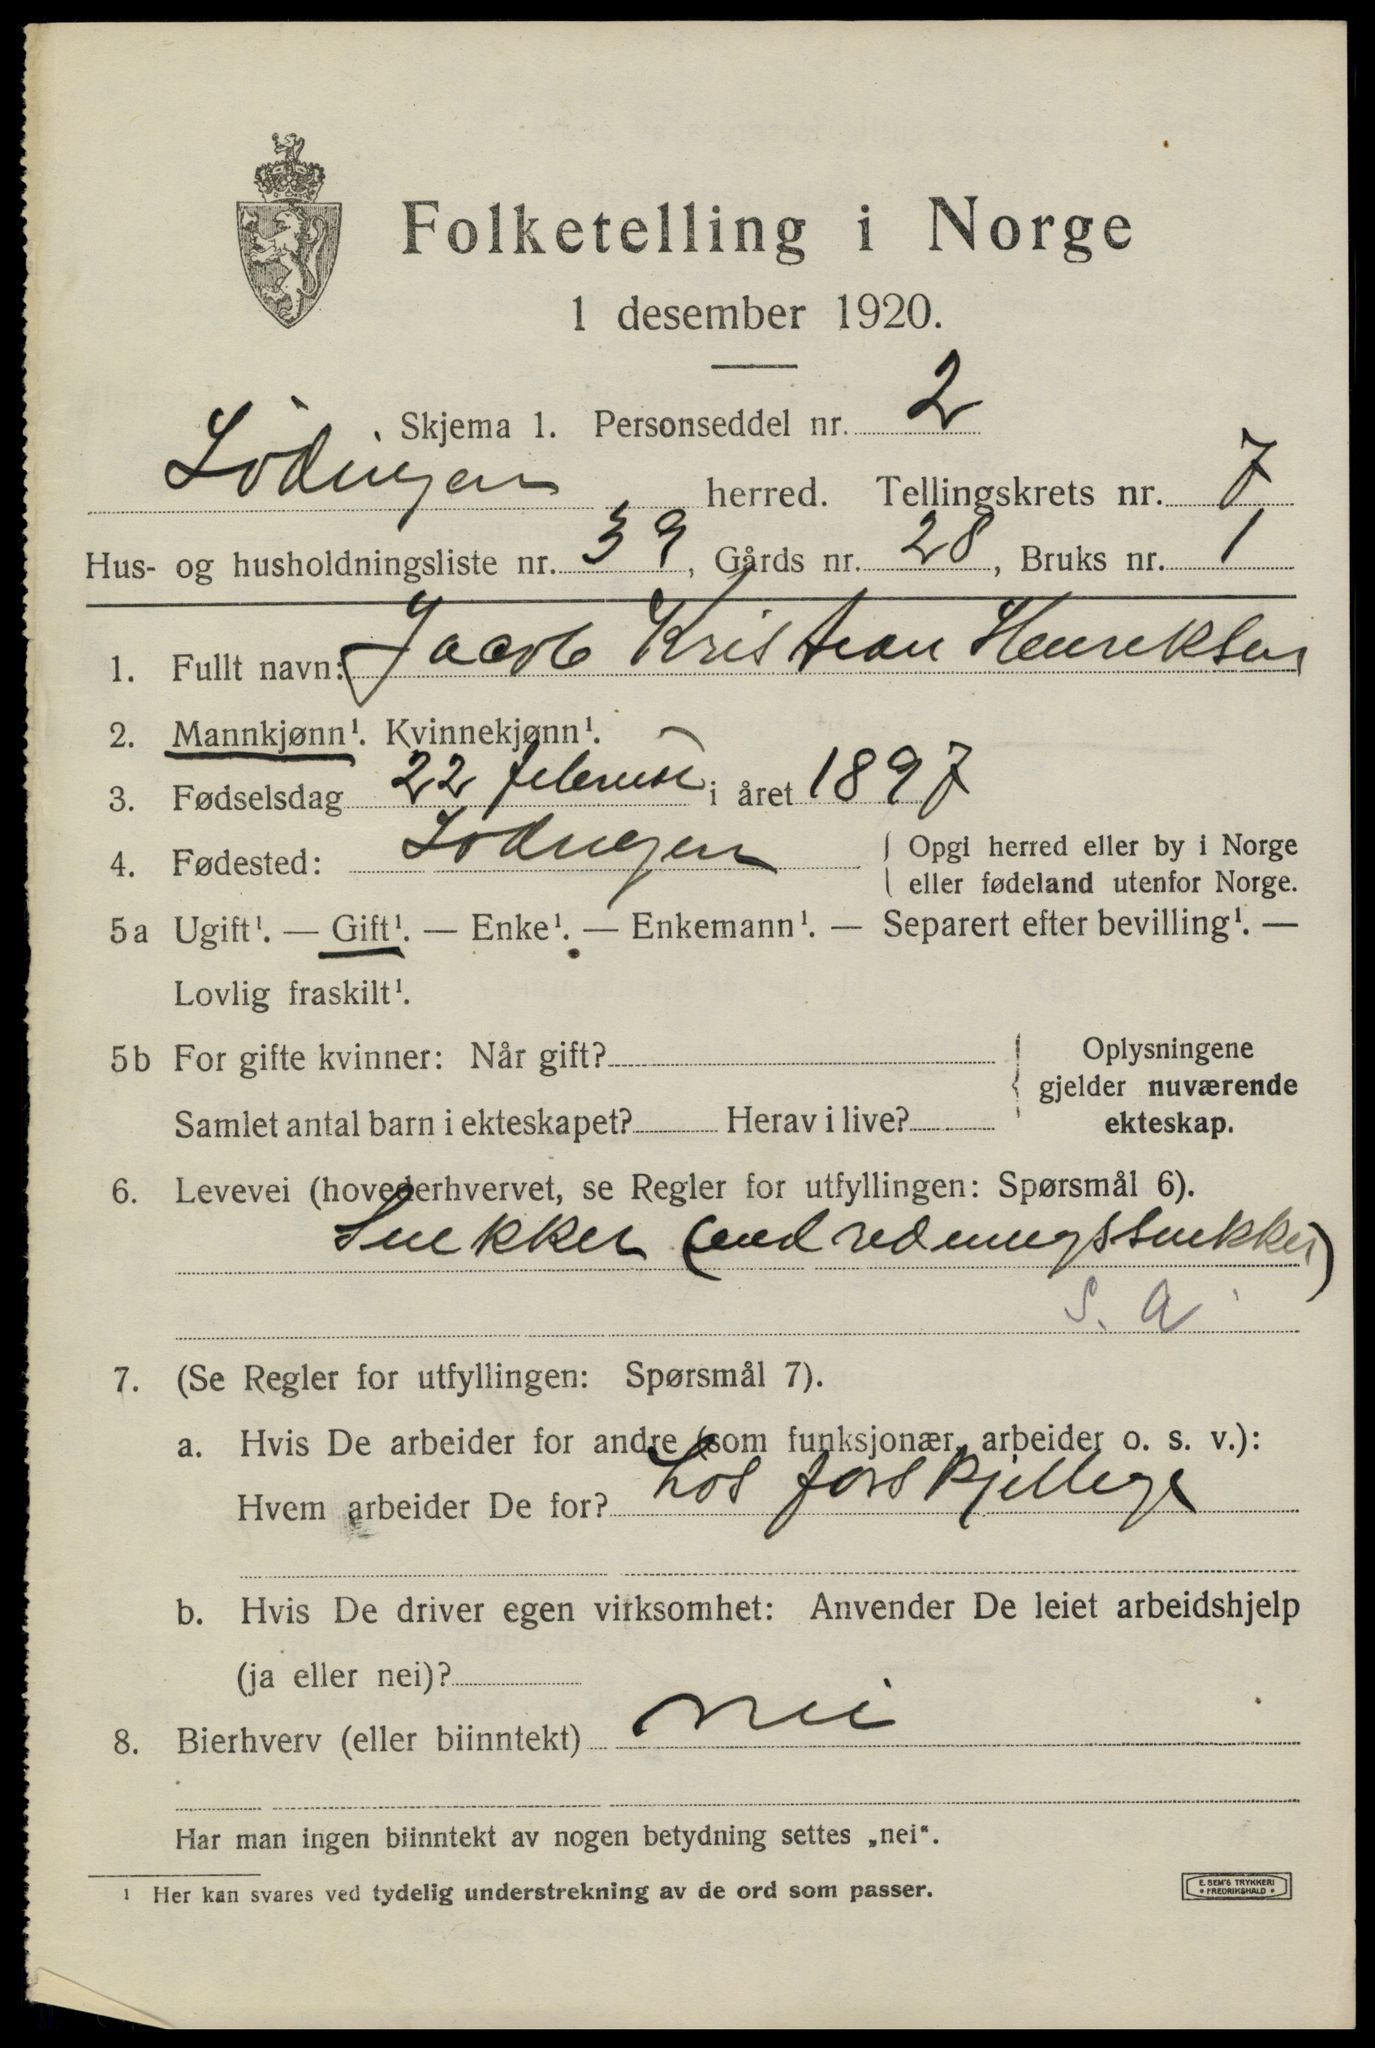 Folketelling i Norge
1 desember 1920.
Skjema 1. Personseddel nr. 2
Lødingen herred. Tellingskrets nr. 7
Hus- og husholdningsliste nr. 39, Gårds nr. 28, Bruks nr. 1
1. Fullt navn: Jacob Kristian Henriksen
2. Mannkjønn¹. Kvinnekjønn¹.
3. Fødselsdag 22 februar i året 1897
4. Fødested: Lødingen { Opgi herred eller by i Norge
eller fødeland utenfor Norge.
5a Ugift¹. — Gift¹. — Enke¹. — Enkemann¹. — Separert efter bevilling¹. —
Lovlig fraskilt¹.
5b For gifte kvinner: Når gift? { Oplysningene
gjelder nuværende
Samlet antal barn i ekteskapet? Herav i live? ekteskap.
6. Levevei (hovederhvervet, se Regler for utfyllingen: Spørsmål 6).
Snekker (indredningssnekker)
S. A
7. (Se Regler for utfyllingen: Spørsmål 7).
a. Hvis De arbeider for andre (som funksjonær, arbeider o. s. v.):
Hvem arbeider De for? hos forskjellige
b. Hvis De driver egen virksomhet: Anvender De leiet arbeidshjelp
(ja eller nei)?
8. Bierhverv (eller biinntekt) nei
Har man ingen biinntekt av nogen betydning settes „nei“.
¹ Her kan svares ved tydelig understrekning av de ord som passer.
E. SEM'S TRYKKERI
• FREDRIKSHALD •